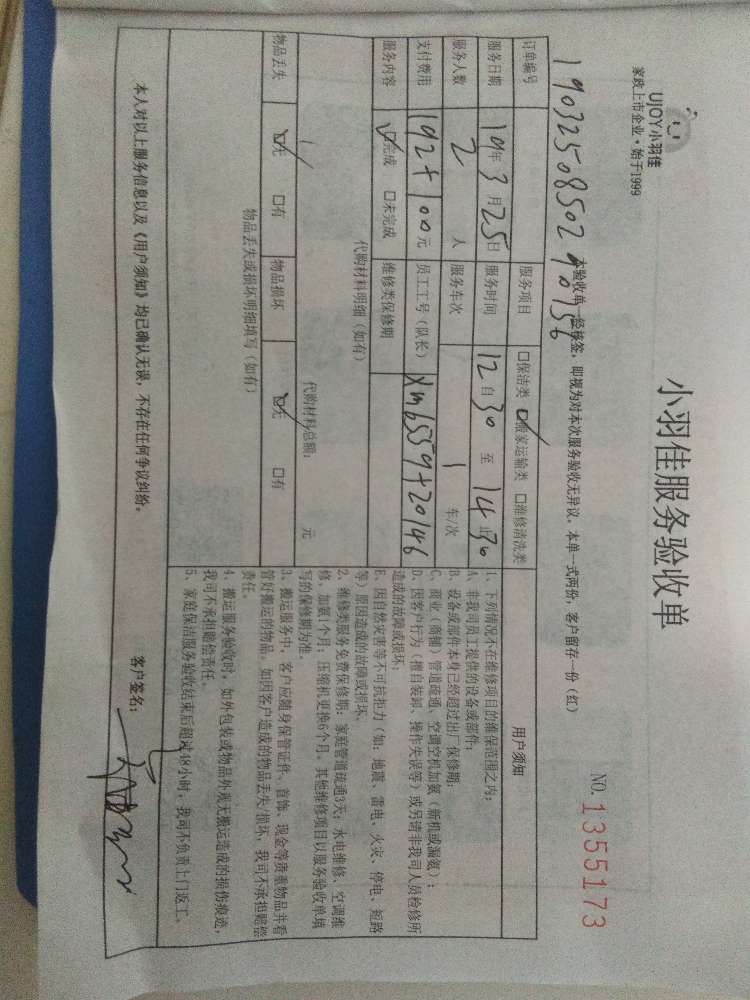 UJOY小羽佳
家政上市企业·始于1999
小羽佳服务验收单
NO. 1355173
本验收单一经核签，即视为对本次服务验收无异议。本单一式两份，客户留存一份（红）
订单编号 190325085029
服务项目 □保洁类 ☑搬家运输类 □维修清洗类
服务日期 19年3月25日 服务时间 12自30至14止30
服务人数 2人 服务车次 1车/次
支付费用 192+100元 员工工号（队长） Xm6559+20146
服务内容 ☑完成 □未完成 维修类保修期
代购材料明细（如有）
代购材料总额： 元
物品丢失 ☑无 □有 物品损坏 ☑无 □有
物品丢失或损坏明细填写（如有）
用户须知
1、下列情况不在维修项目的维保范围之内：
A、非我司员工提供的设备或部件；
B、设备或部件本身已经超过出厂保修期；
C、商业（商铺）管道疏通、空调空机加氨（新机或漏氨）；
D、因客户行为（擅自装卸、操作失误等）或另请非我司人员检修所
造成的故障或损坏；
E、因自然灾害等不可抗拒力（如：地震、雷电、火灾、停电、短路
等）原因造成的故障或损坏。
2、维修类服务免费保修期：家庭管道疏通3天；水电维修、空调维
修、加氨1个月；压缩机更换6个月。其他维修项目以服务验收单填
写的保修期为准。
3、搬运服务中，客户应随身保管证件、首饰、现金等贵重物品并看
管好搬运的物品，如因客户造成的物品丢失/损坏，我司不承担赔偿
责任。
4、搬运服务验收时，如外包装或物品外观无搬运造成的损伤痕迹，
我司不承担赔偿责任。
5、家庭保洁服务验收结束后超过48小时，我司不负责上门返工。
本人对以上服务信息以及《用户须知》均已确认无误，不存在任何争议纠纷。
客户签名：